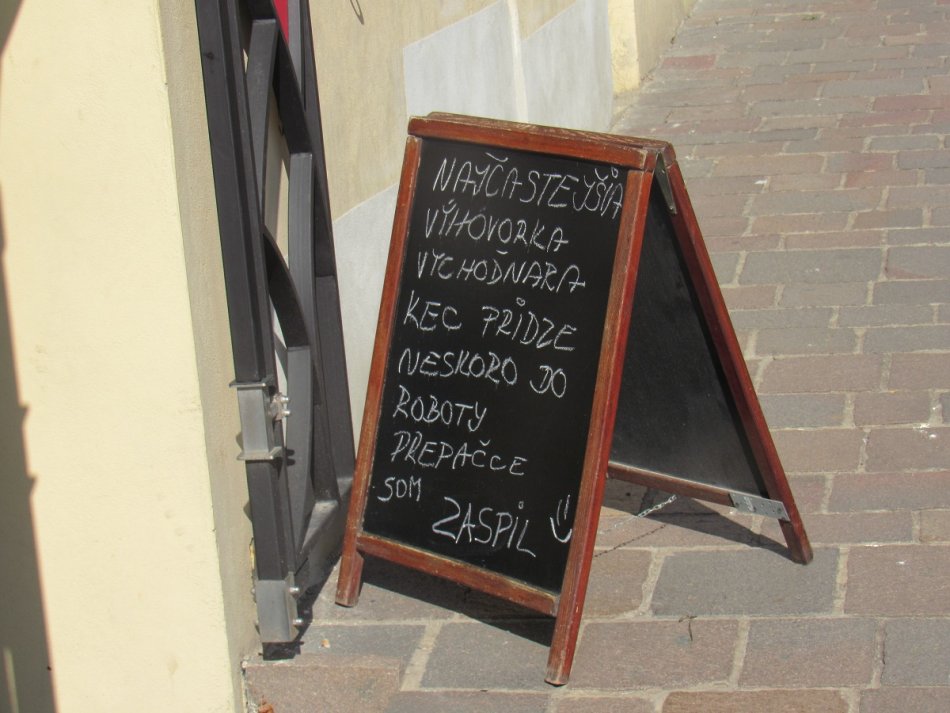 NAJČASTEJŠIA
VÝHOVORKA
VYCHODŇARA
KEC PRIDZE
NESKORO DO
ROBOTY
PREPAČCE
SOM
ZASPIL